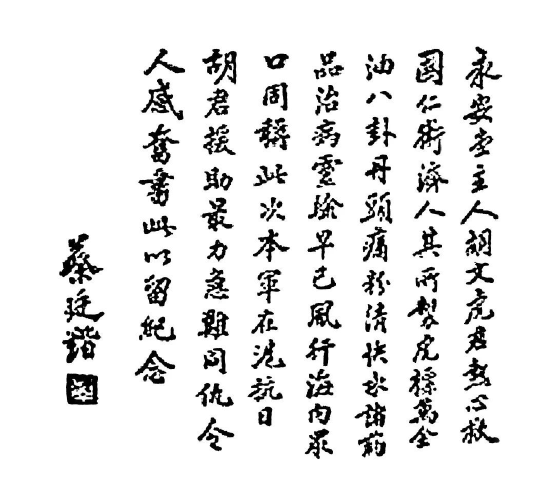 永安堂主人胡文虎君熱心救
國仁術濟人其所製虎標萬金
油八卦丹頭痛粉清快水諸葯
品治病靈驗早已風行海内眾
口同稱此次本軍在滬抗日
胡君援助最力急難同仇令
人感奮書此以留紀念
蔡廷鍇